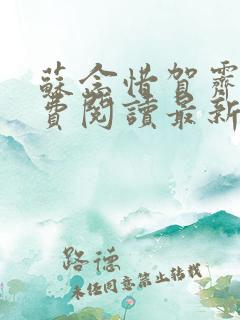 蘇念惜賀霽
費閱讀最新
路德
未經同意禁止轉載